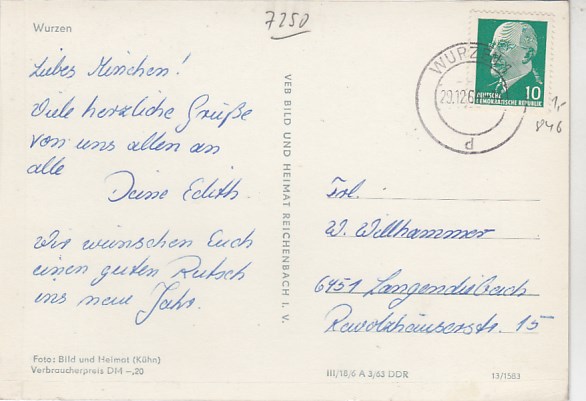 Wurzen
7250
Liebes Minchen!
Viele herzliche Grüße
von uns allen an
alle
Deine Edith
Wir wünschen Euch
einen guten Rutsch
ins neue Jahr.
Foto: Bild und Heimat (Kühn)
Verbraucherpreis DM -,20
VEB BILD UND HEIMAT REICHENBACH I. V.
WURZEN
29.12.6
d
10
DEUTSCHE
DEMOKRATISCHE REPUBLIK
1,-
846
Frl.
W. Willhammer
6451 Langendiebach
Ravolzhäuserstr. 15
III/18/6 A 3/63 DDR
13/1583